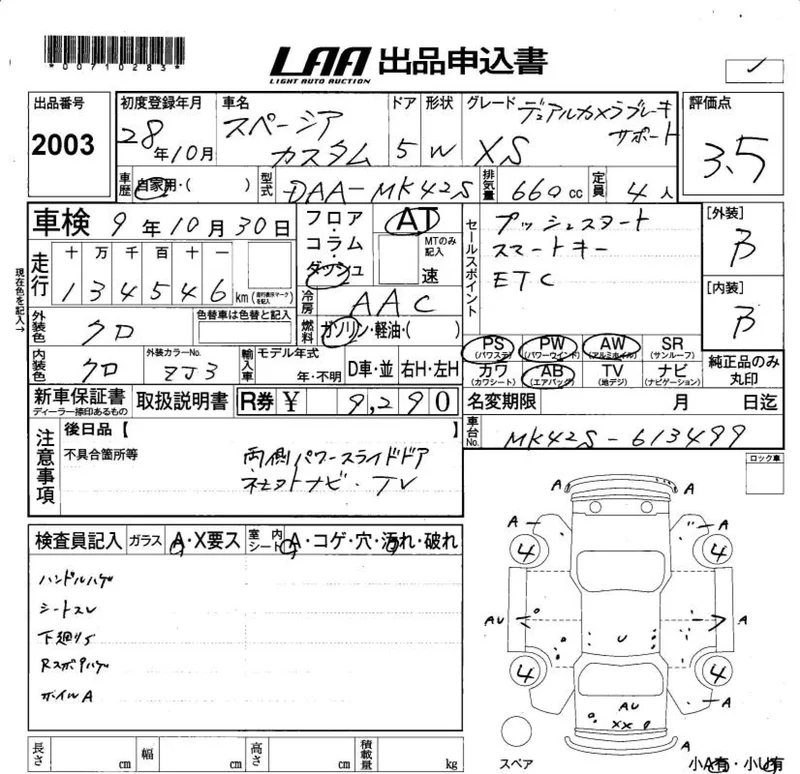 *00710283*
LAA 出品申込書
LIGHT AUTO AUCTION
✓
出品番号
2003
初度登録年月
28年10月
車名
スペーシア
カスタム
ドア
5
形状
W
グレード
デュアルカメラブレーキ
サポート
XS
評価点
3.5
車歴
自家用・( )
型式
DAA-MK42S
排気量
660cc
定員
4人
車検 9年10月30日
フロア・コラム・ダッシュ
AT
MTのみ記入
速
セールスポイント
プッシュスタート
スマートキー
ETC
[外装]
B
[内装]
B
現在色を記入→
走行
十 万 千 百 十 一
1 3 4 5 4 6 km
(走行表示マークを記入)
冷房
AAC
燃料
ガソリン・軽油・( )
外装色
クロ
色替車は色替と記入
内装色
クロ
外装カラーNo.
ZJ3
輸入車
モデル年式
年・不明
D車・並
右H・左H
PS(パワステ) PW(パワーウインド) AW(アルミホイル) SR(サンルーフ)
カワ(カワシート) AB(エアバック) TV(地デジ) ナビ(ナビゲーション)
純正品のみ丸印
新車保証書
ディーラー捺印あるもの
取扱説明書
R券 ¥ 9,290
名変期限 月 日迄
車台No.
MK42S-613499
注意事項
後日品【 】
不具合箇所等
両側パワースライドドア
社外ナビ・TV
ロック車
検査員記入
ガラス
A・X要ス
室内シート
A・コゲ・穴・汚れ・破れ
ハンドルハゲ
シートスレ
下廻りS
Rスポタハゲ
ホイルA
A A
A A
4 4
AU A
U
4 4
A A
AU
XX
A
スペア
小A有・小U有
長さ cm
幅 cm
高さ cm
積載量 kg